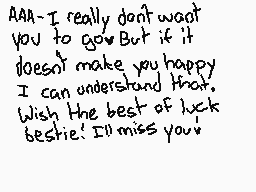 AAA-I really don't want
you to go♥ But if it
doesn't make you happy
I can understand that.
Wish the best of luck
bestie! I'll miss you♥